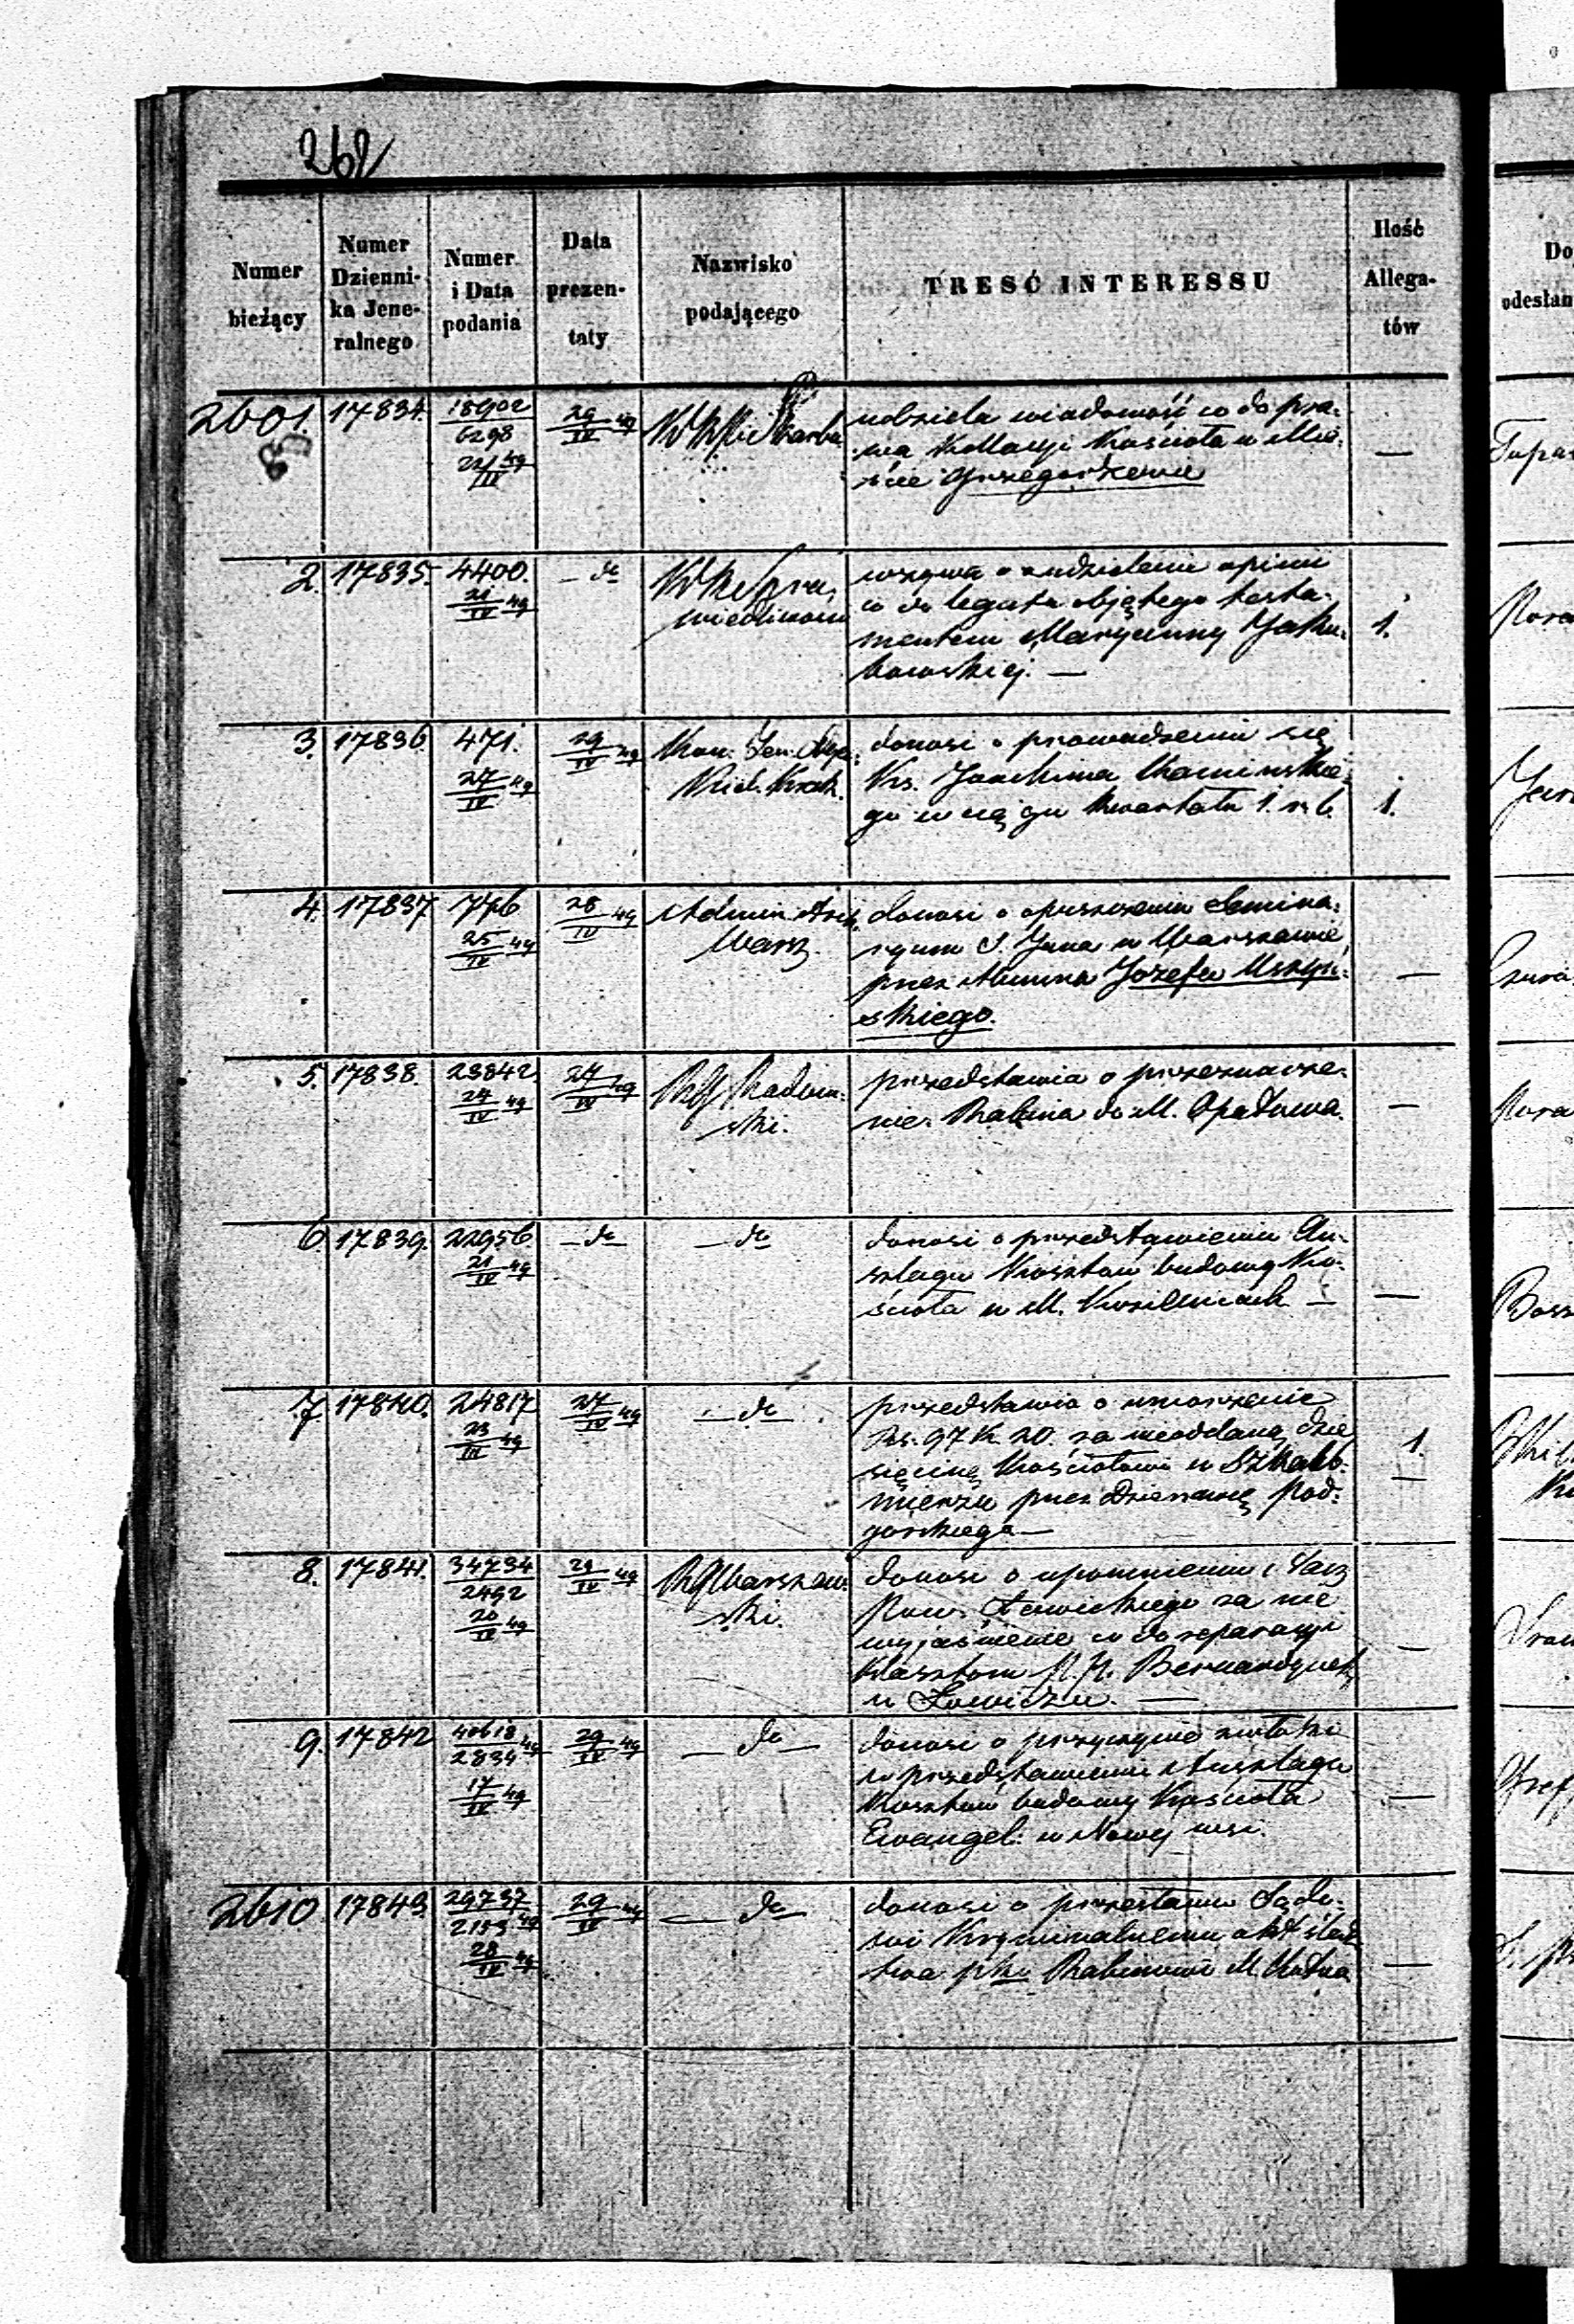 262
Numer bieżący
Numer Dzienni-ka Jene-ralnego
Numer i Data podania
Data prezen-taty
Nazwisko podającego
TRESĆ INTERESSU
Ilość Allega-tów
Do
odesłan
2601. 17834. 18902 6298 22/IV 49 29/IV 49 Skarbu
udziela wiadomość co do pra-
wa Kollacyi Kościoła w Mie-
ście Grzegorzewie —
2. 17835. 4400. 21/IV 49 — do KRSpra-
wiedliwości
wzywa o udzielenie opinii
co do legatu objętego testa-
mentem Maryanny Jaku-
bowskiej. — 1.
3. 17836. 471. 27/IV 49 29/IV 49 Kon. Jen.
Kiel. Krak.
donosi o prowadzeniu się
Ks. Joachima Kamińskie-
go w ciągu kwartału 1. r. b. 1.
4. 17837 776 25/IV 49 28/IV 49 Admin. Arch.
Warsz.
donosi o opuszczeniu Semina-
ryum S. Jana w Warszawie
przez Alumna Józefa
skiego. —
5. 17838. 23842. 24/IV 49 27/IV 49 RG Radom-
ski.
przedstawia o przeznacze-
nie Rabina do M. Opatowa. —
6. 17839. 22956. 21/IV 49 — do — — do
donosi o przedstawieniu An-
szlagu Kosztów budowy Ko-
ścioła w M. Kozienicach — —
7. 17840. 24817 23/III 49 27/IV 49 — do —
przedstawia o umorzenie
Rs. 97 K. 20. za nieoddaną dzie
sięcinę Kościołowi w Szkalb-
mierzu przez dzierżawcę Pod-
górskiego — 1.
8. 17841. 34734 2492 20/IV 49 29/IV 49 RGWarszaw-
ski.
donosi o upomnieniu
Pow. Łowickiego za nie
wyjaśnienie co do reparacyi
Klasztoru P.P. Bernardynek
w Łowiczu. — —
9. 17842 40618 2834 49 17/IV 49 29/IV 49 — do —
donosi o przyczynie zwłoki
w przedstawieniu Anszlagu
Kosztów budowy Kościoła
Ewangel: w Nowej wsi. —
2610 17843 29737 2153 49 28/IV 49 29/IV 49 — do
donosi o przesłaniu Sądo-
wi Kryminalnemu akt śledz
twa pko Rabinowi M. Kutna —